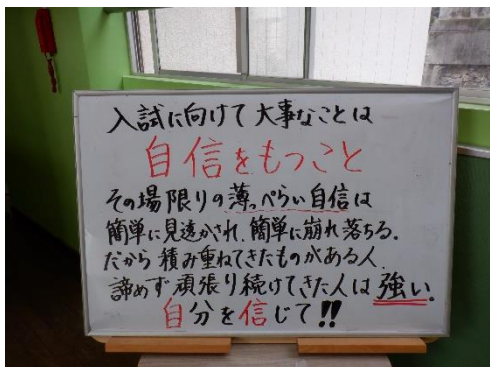 入試に向けて大事なことは
自信をもつこと
その場限りの薄っぺらい自信は
簡単に見透かされ、簡単に崩れ落ちる。
だから積み重ねてきたものがある人、
諦めず頑張り続けてきた人は強い。
自分を信じて!!